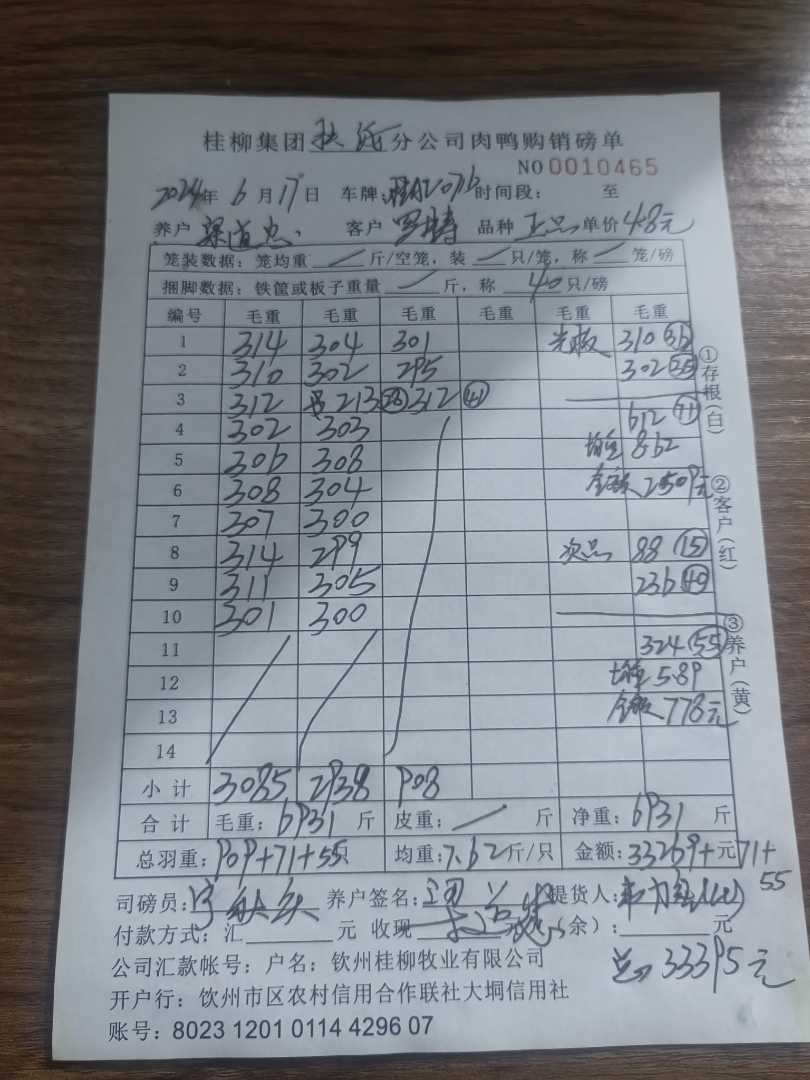 桂柳集团 分公司肉鸭购销磅单
NO 0010465
2024年 6 月 17 日 车牌: 时间段: 至
养户 渠道忠 客户 罗 品种 正品 单价 4.8元
笼装数据: 笼均重 / 斤/空笼, 装 / 只/笼, 称 / 笼/磅
捆脚数据: 铁筐或板子重量 / 斤, 称 40 只/磅
编号 毛重 毛重 毛重 毛重 毛重 毛重
1 314 304 301 光板 310 (36)
2 310 302 295 302 (35)
3 312 213 (28) 312 (41)
4 302 303 612 (71)
5 306 308 均重 8.62
6 308 304 金额 2509元
7 307 300
8 314 299 次品 88 (15)
9 311 305 236 (40)
10 301 300
11 324 (55)
12 均重 5.89
13 金额 778元
14
小计 3085 2938 908
合计 毛重: 6931 斤 皮重: / 斤 净重: 6931 斤
总羽重: 909+71+55只 均重: 7.62斤/只 金额: 33269+元 71+
55
司磅员: 养户签名: 提货人:
付款方式: 汇 元 收现 (余): 元
公司汇款帐号: 户名: 钦州桂柳牧业有限公司
总 33395元
开户行: 钦州市区农村信用合作联社大垌信用社
账号: 8023 1201 0114 4296 07
①存根(白)
②客户(红)
③养户(黄)